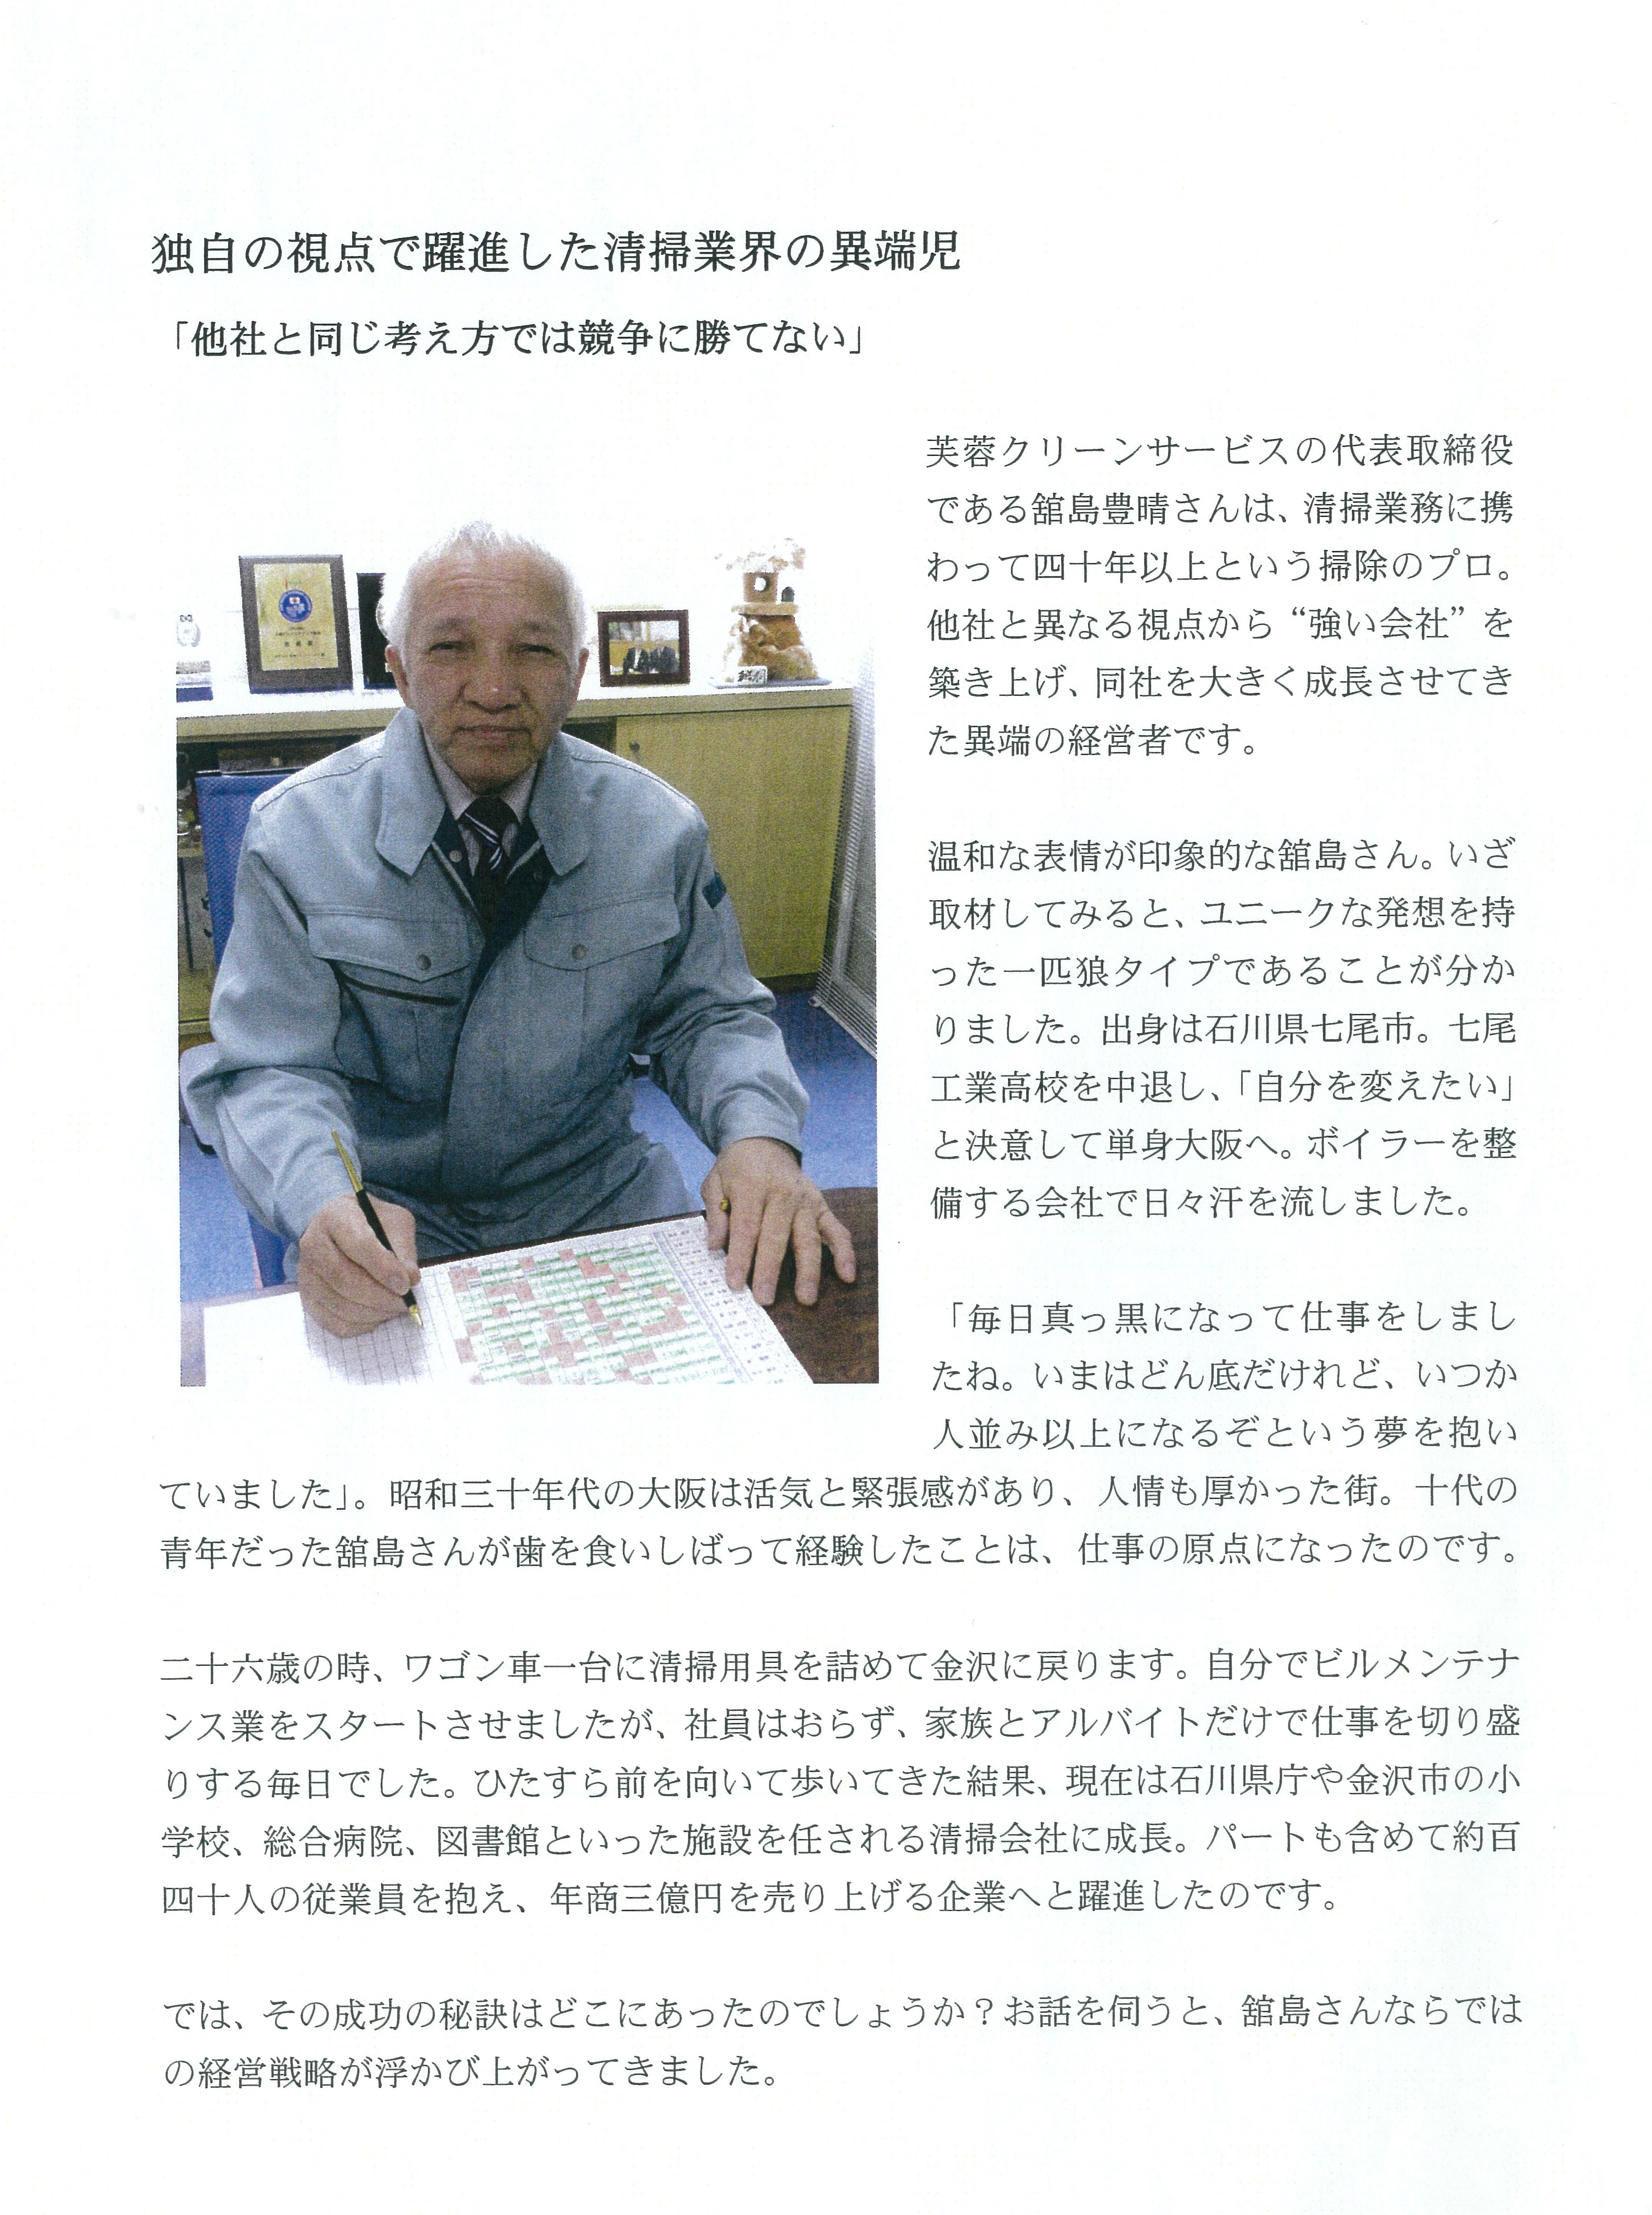 独自の視点で躍進した清掃業界の異端児
「他社と同じ考え方では競争に勝てない」
芙蓉クリーンサービスの代表取締役
である舘島豊晴さんは、清掃業務に携
わって四十年以上という掃除のプロ。
他社と異なる視点から“強い会社”を
築き上げ、同社を大きく成長させてき
た異端の経営者です。
温和な表情が印象的な舘島さん。いざ
取材してみると、ユニークな発想を持
った一匹狼タイプであることが分か
りました。出身は石川県七尾市。七尾
工業高校を中退し、「自分を変えたい」
と決意して単身大阪へ。ボイラーを整
備する会社で日々汗を流しました。
「毎日真っ黒になって仕事をしまし
たね。いまはどん底だけれど、いつか
人並み以上になるぞという夢を抱い
ていました」。昭和三十年代の大阪は活気と緊張感があり、人情も厚かった街。十代の
青年だった舘島さんが歯を食いしばって経験したことは、仕事の原点になったのです。
二十六歳の時、ワゴン車一台に清掃用具を詰めて金沢に戻ります。自分でビルメンテナ
ンス業をスタートさせましたが、社員はおらず、家族とアルバイトだけで仕事を切り盛
りする毎日でした。ひたすら前を向いて歩いてきた結果、現在は石川県庁や金沢市の小
学校、総合病院、図書館といった施設を任される清掃会社に成長。パートも含めて約百
四十人の従業員を抱え、年商三億円を売り上げる企業へと躍進したのです。
では、その成功の秘訣はどこにあったのでしょうか？お話を伺うと、舘島さんならでは
の経営戦略が浮かび上がってきました。